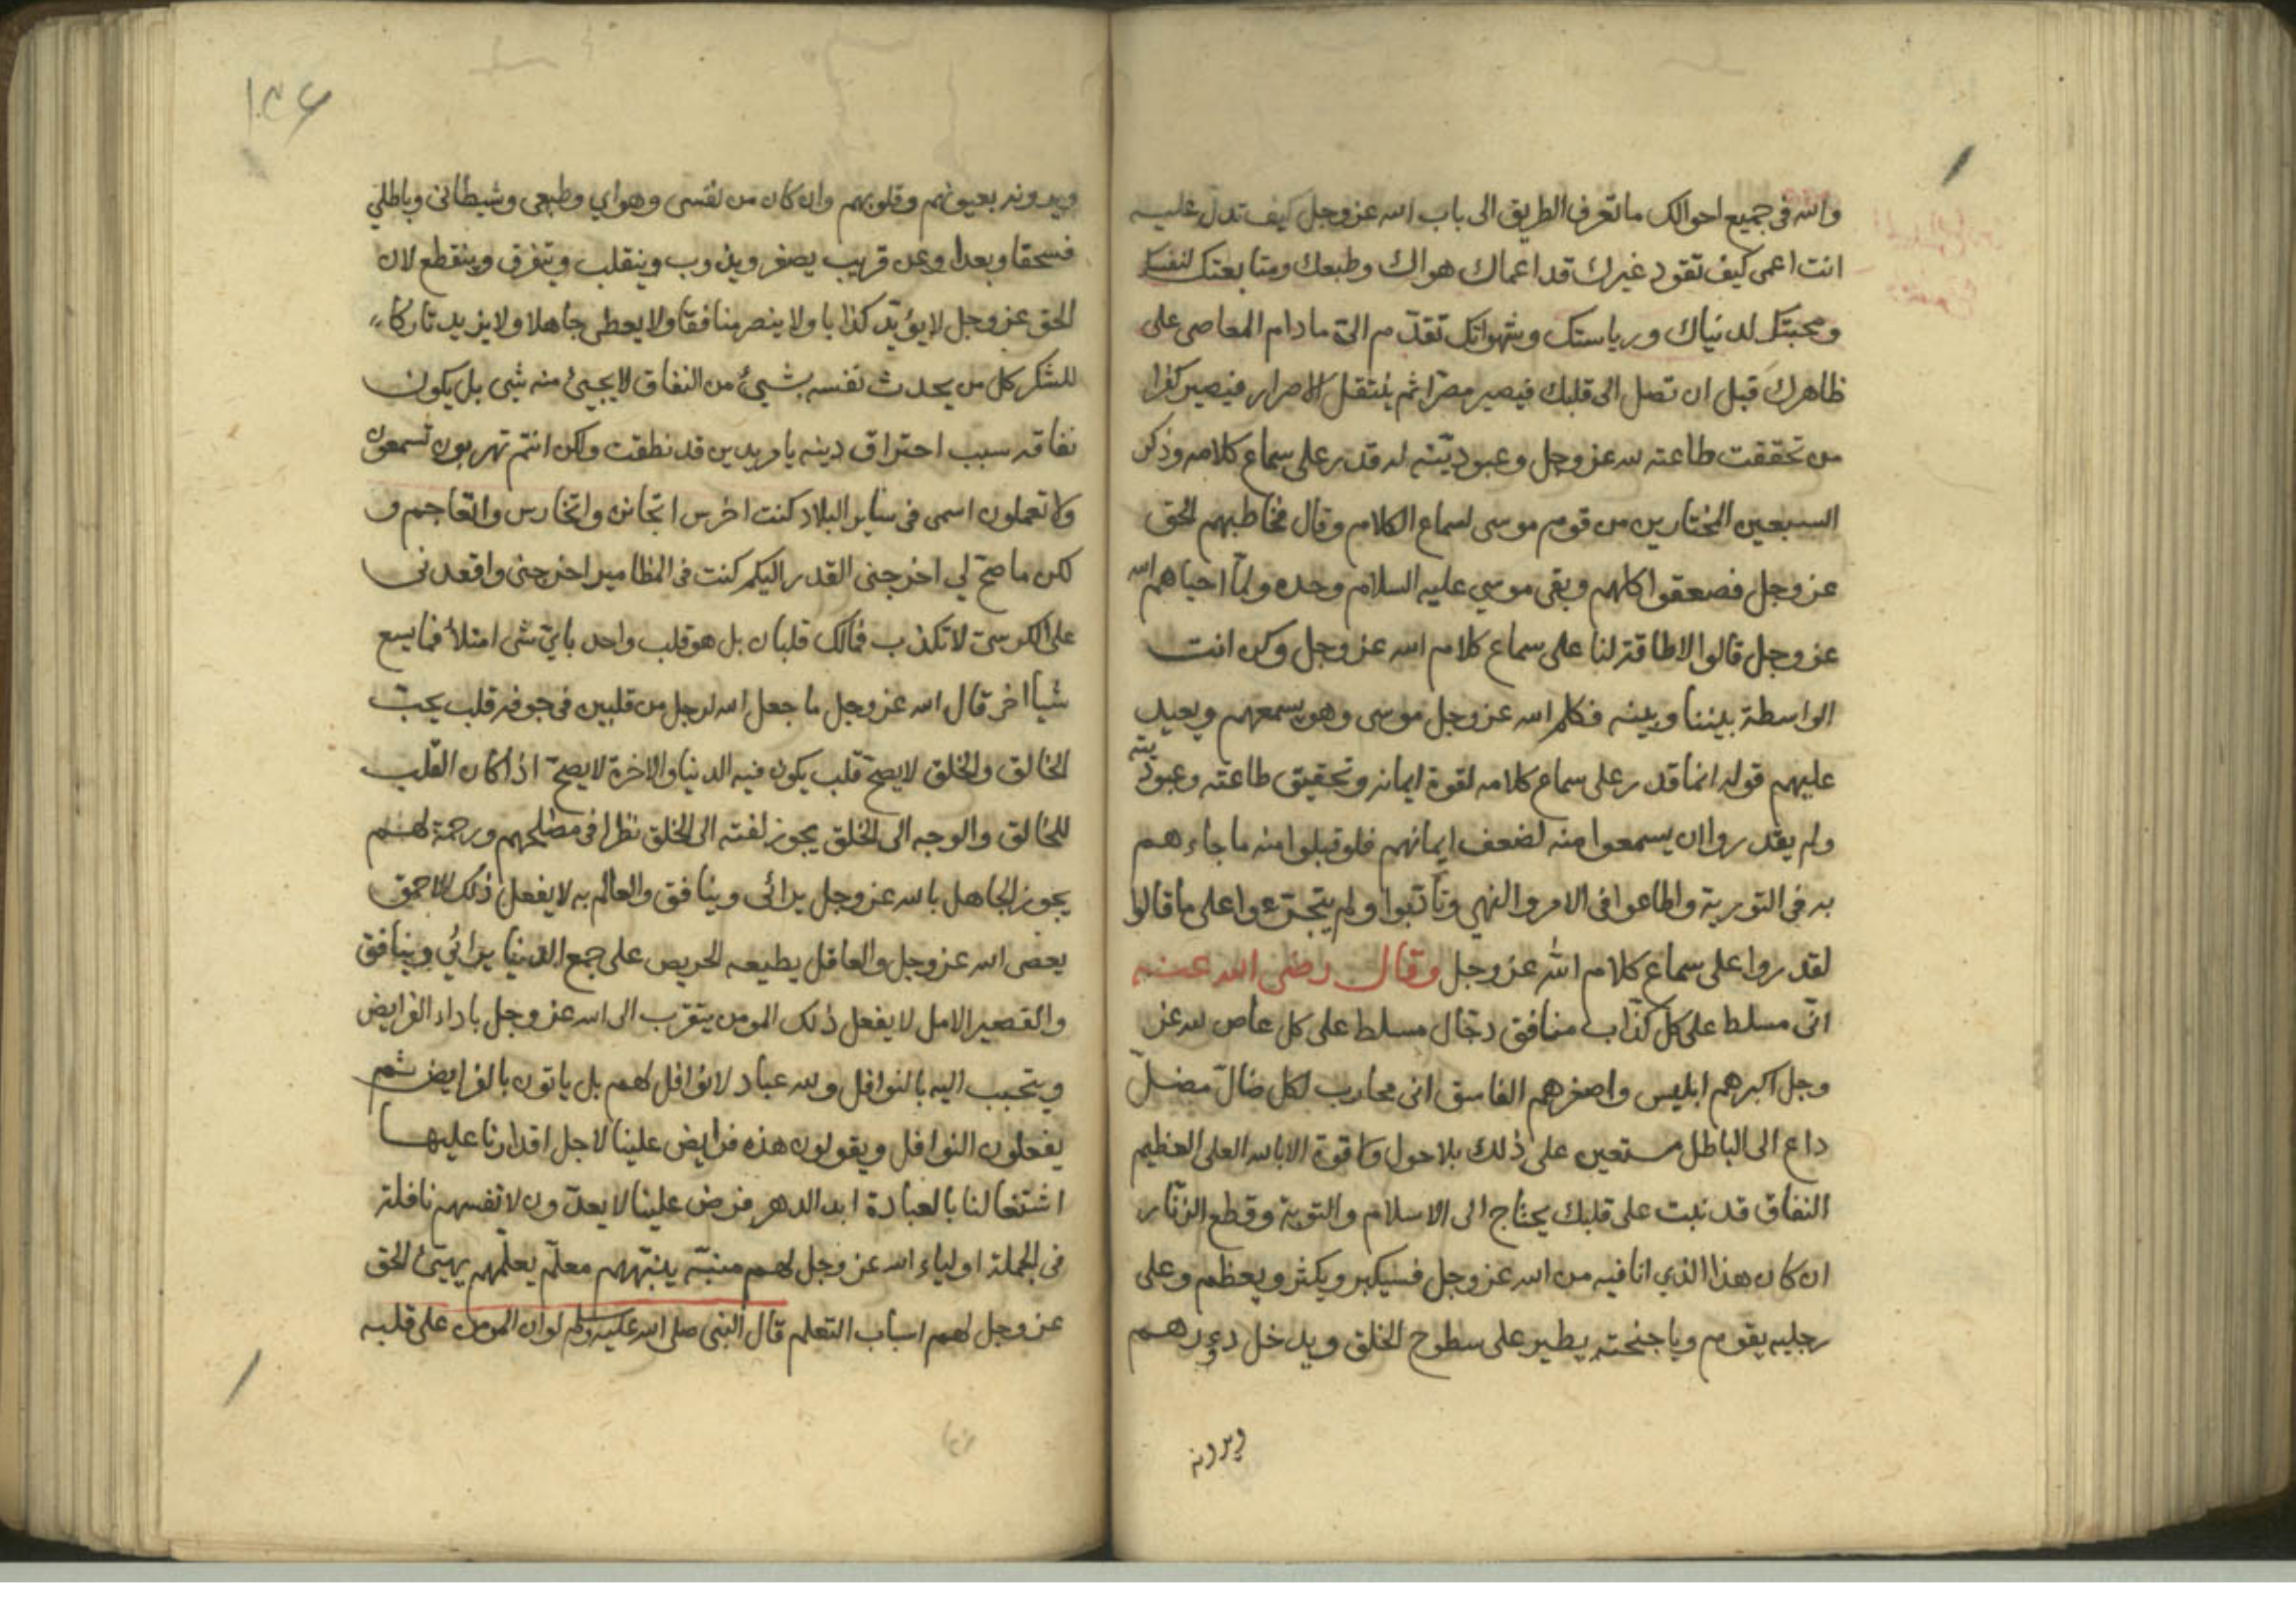 والله في جميع احوالك ما تعرف الطريق الى باب الله عز وجل كيف تدل عليه
انت اعمى كيف تقود غيرك قد اعماك هواك وطبعك ومتابعتك لنفسك
ومحبتك لدنياك ورياستك وشهواتك تقدّم اليّ ما دام المعاصى على
ظاهرك قبل ان تصل الى قلبك فيصير مصرّا ثم ينتقل الاصرار فيصير كفرا
من تحققت طاعته لله عز وجل وعبوديّته له قدر على سماع كلامه وذكر
السبعين المختارين من قوم موسى لسماع الكلام وقال مخاطبهم الحق
عز وجل فصعقوا كلهم وبقى موسي عليه السلام وحده ولمّا احياهم الله
عز وجل قالوا لا طاقة لنا على سماع كلام الله عز وجل وكن انت
الواسطة بيننا وبينه فكلم الله عز وجل موسى وهو يسمعهم ويعيد
عليهم قوله انما قدر على سماع كلامه لقوة ايمانه وتحقيق طاعته وعبوديته
ولم يقدروا ان يسمعوا منه لضعف ايمانهم فلو قبلوا منه ما جاءهم
به في التورية واطاعوا في الامر والنهي وتأدبوا ولم يتجرّءوا على ما قالوا
لقدروا على سماع كلام الله عز وجل وقال رضى الله عنه
انّى مسلط على كل كذّاب منافق دجّال مسلط على كل عاص لله عز
وجل اكبرهم ابليس واصغرهم الفاسق انى محارب لكل ضالّ مضلّ
داع الى الباطل مستعين على ذلك بلا حول ولا قوة الا بالله العلى العظيم
النفاق قد نبت على قلبك يحتاج الى الاسلام والتوبة وقطع الزنّار
ان كان هذا الذي انا فيه من الله عز وجل فسيكبر ويكثر ويعظم وعلى
رجليه يقوم وباجنحته يطير على سطوح الخلق ويدخل دورهم
ويرونه
ويرونه بعيونهم وقلوبهم وان كان من نفسى وهواي وطبعى وشيطانى وباطلي
فسحقا وبعدا وعن قريب يصغر ويذوب وينقلب ويتفرق وينقطع لان
الحق عز وجل لا يؤيّد كذابا ولا ينصر منافقا ولا يعطى جاهلا ولا يزيد تاركا
للشكر كل من يحدث نفسه بشيئ من النفاق لا يجيئ منه شى بل يكون
نفاقه سبب احتراق دينه يا مريدين قد نطقت ولكن انتم تهربون تسمعون
ولا تعملون اسمى في ساير البلاد كنت اخرس اتجانن واتخارس واتعاجم و
لكن ما صحّ لي اخرجنى القدر اليكم كنت في المطامير اخرجنى واقعدنى
على الكرسىّ لا تكذب فمالك قلبان بل هو قلب واحد بايّ شى امتلأ فما يسع
شيا اخر قال الله عز وجل ما جعل الله لرجل من قلبين في جوفه قلب يحبّ
الخالق والخلق لا يصحّ قلب يكون فيه الدنيا والاخرة لا يصحّ اذا كان القلب
للخالق والوجه الى الخلق يجوز لفته الى الخلق نظرا في مصلحهم ورحمة لهم
يجوز الجاهل بالله عز وجل يرائى وينافق والعالم به لا يفعل ذلك الاحمق
يعصى الله عز وجل والعاقل يطيعه الحريص على جمع الدنيا يرائي وينافق
والقصير الامل لا يفعل ذلك المومن يتقرب الى الله عز وجل باداء الفرايض
ويتحبب اليه بالنوافل ولله عباد لا نوافل لهم بل ياتون بالفرايض ثم
يفعلون النوافل ويقولون هذه فرايض علينا لاجل اقدارنا عليها
اشتغالنا بالعبادة ابد الدهر فرض علينا لا يعدّون لانفسهم نافلة
في الجملة اولياء الله عز وجل لهم منبّه ينبّههم معلّم يعلّمهم يهيّئ الحق
عز وجل لهم اسباب التعلم قال النبى صلى الله عليه وسلم لو ان المومن على قلبه